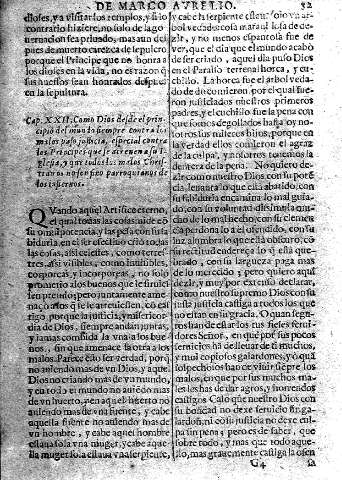 DE MARCO AVRELIO. 32
dioses, ya visitar los templos, y si lo
contrario hiziere, no solo de la go
uernacion sea priuado, mas aun des
pues de muerto carezca de sepulcro
porque el Principe que no honra a
los dioses en la vida, no es razon q̃
sus huessos sean honrados despues
en la sepultura.
Cap. XXII, Como Dios desde el prin
cipio del mundo siempre contra los
malos paso justicia, especial contra
los Principes que se atreuen a su Y
glesia, y que todos los malos Chris
tianos no son sino parroquianos de
los infiernos.
QVando aquel Artifice eterno,
el qual todas las cosas mide có
su omnipotencia, y las pesa con su sa
biduria, en el ser efectiuo crió todas
las cosas, assi celestes, como terres
tres, assi visibles, como inuisibles,
corporeas, y incorporeas, no solo
prometio alos buenos que le siruies
sen premio, pero juntamente ame
nazo a los q̃ le
rigo, porque la justicia, y misericor
dia de Dios, siempre andan juntas,
y jamas consola la vna a los bue
nos, sin que amenace la otra a los
malos. Parece esto ser verdad, por q̃
no auiendo mas de vn Dios, y aquel
Dios no criando mas de vn mundo,
y en todo el mundo no auiedo mas
de vn huerto, y en aquel huerto no
auiendo mas de vna fuente, y cabe
aquella fuente no auiendo mas de
vn hombre, y cabe aquel hombre
estaua sola vna muger, y cabe aque
lla muger sola estaua vna serpiente,
y cabe la serpiente estaua solo vn ar
bol vedado
zir, y no menos espantosa fue de
ver, que el dia que el mundo acabó
de ser criado, aquel dia puso Dios
en el Parayso terrenal horca, y cu
chillo. La horca fue el arbol veda
do do comieron, por el qual fue
ron justiciados nuestros primeros
padres, y el cuchillo fue la pena con
que somos degollados hasta oy no
sotros sus miseros hijos, porque en
la verdad ellos comieron el agraz
de la culpa, y nosotros tenemos la
dentera de la pena. No quiero de
zir, como nuestro Dios con su potē
cia, leuanta lo que está abatido, con
su sabiduria encamina lo mal guia
do, con su voluntad dissimula mu
cho de lo mal hecho, con su clemen
cia perdona lo a el ofendido, con su
luz alumbra lo que está obscuro, có
su rectitud endereça lo q̃ está que
brado, con su largueza paga mas
de lo merecido, pero quiero aqui
dezir, y muy por extenso declarar,
como nuestro supremo Dios con su
justa justicia castiga a todos los que
no estan en su gracia. O quan segu
ros han de estar los tus fieles serui
dores Señor, en que por sus pocos
seruicios ha de lleuar de ti muchos,
y mui copiosos galardones, y o quã
sospechosos han de viuir siempre los
malos, en que por sus muchos ma
les les has de dar agros, y horrendos
castigos. Caso que nuestro Dios con
su bondad no dexe seruicio sin ga
lardon, ni con su justicia no dexe cul
pa sin pena, pero es de saber, que
sobre todo, y mas que todo aque
llo, mas grauemente castiga la ofen
G4 sa